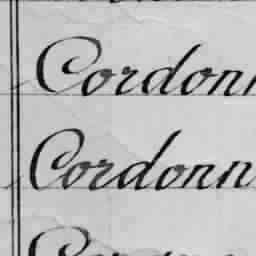 Cordonn
Cordonn